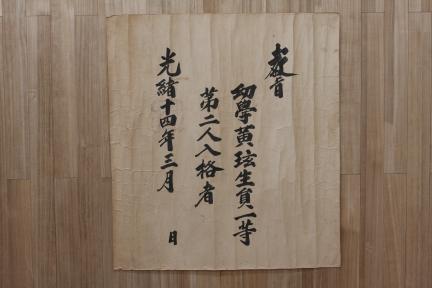 敎旨
幼學黃玹生員一等
第二人入格者
光緖十四年三月 日